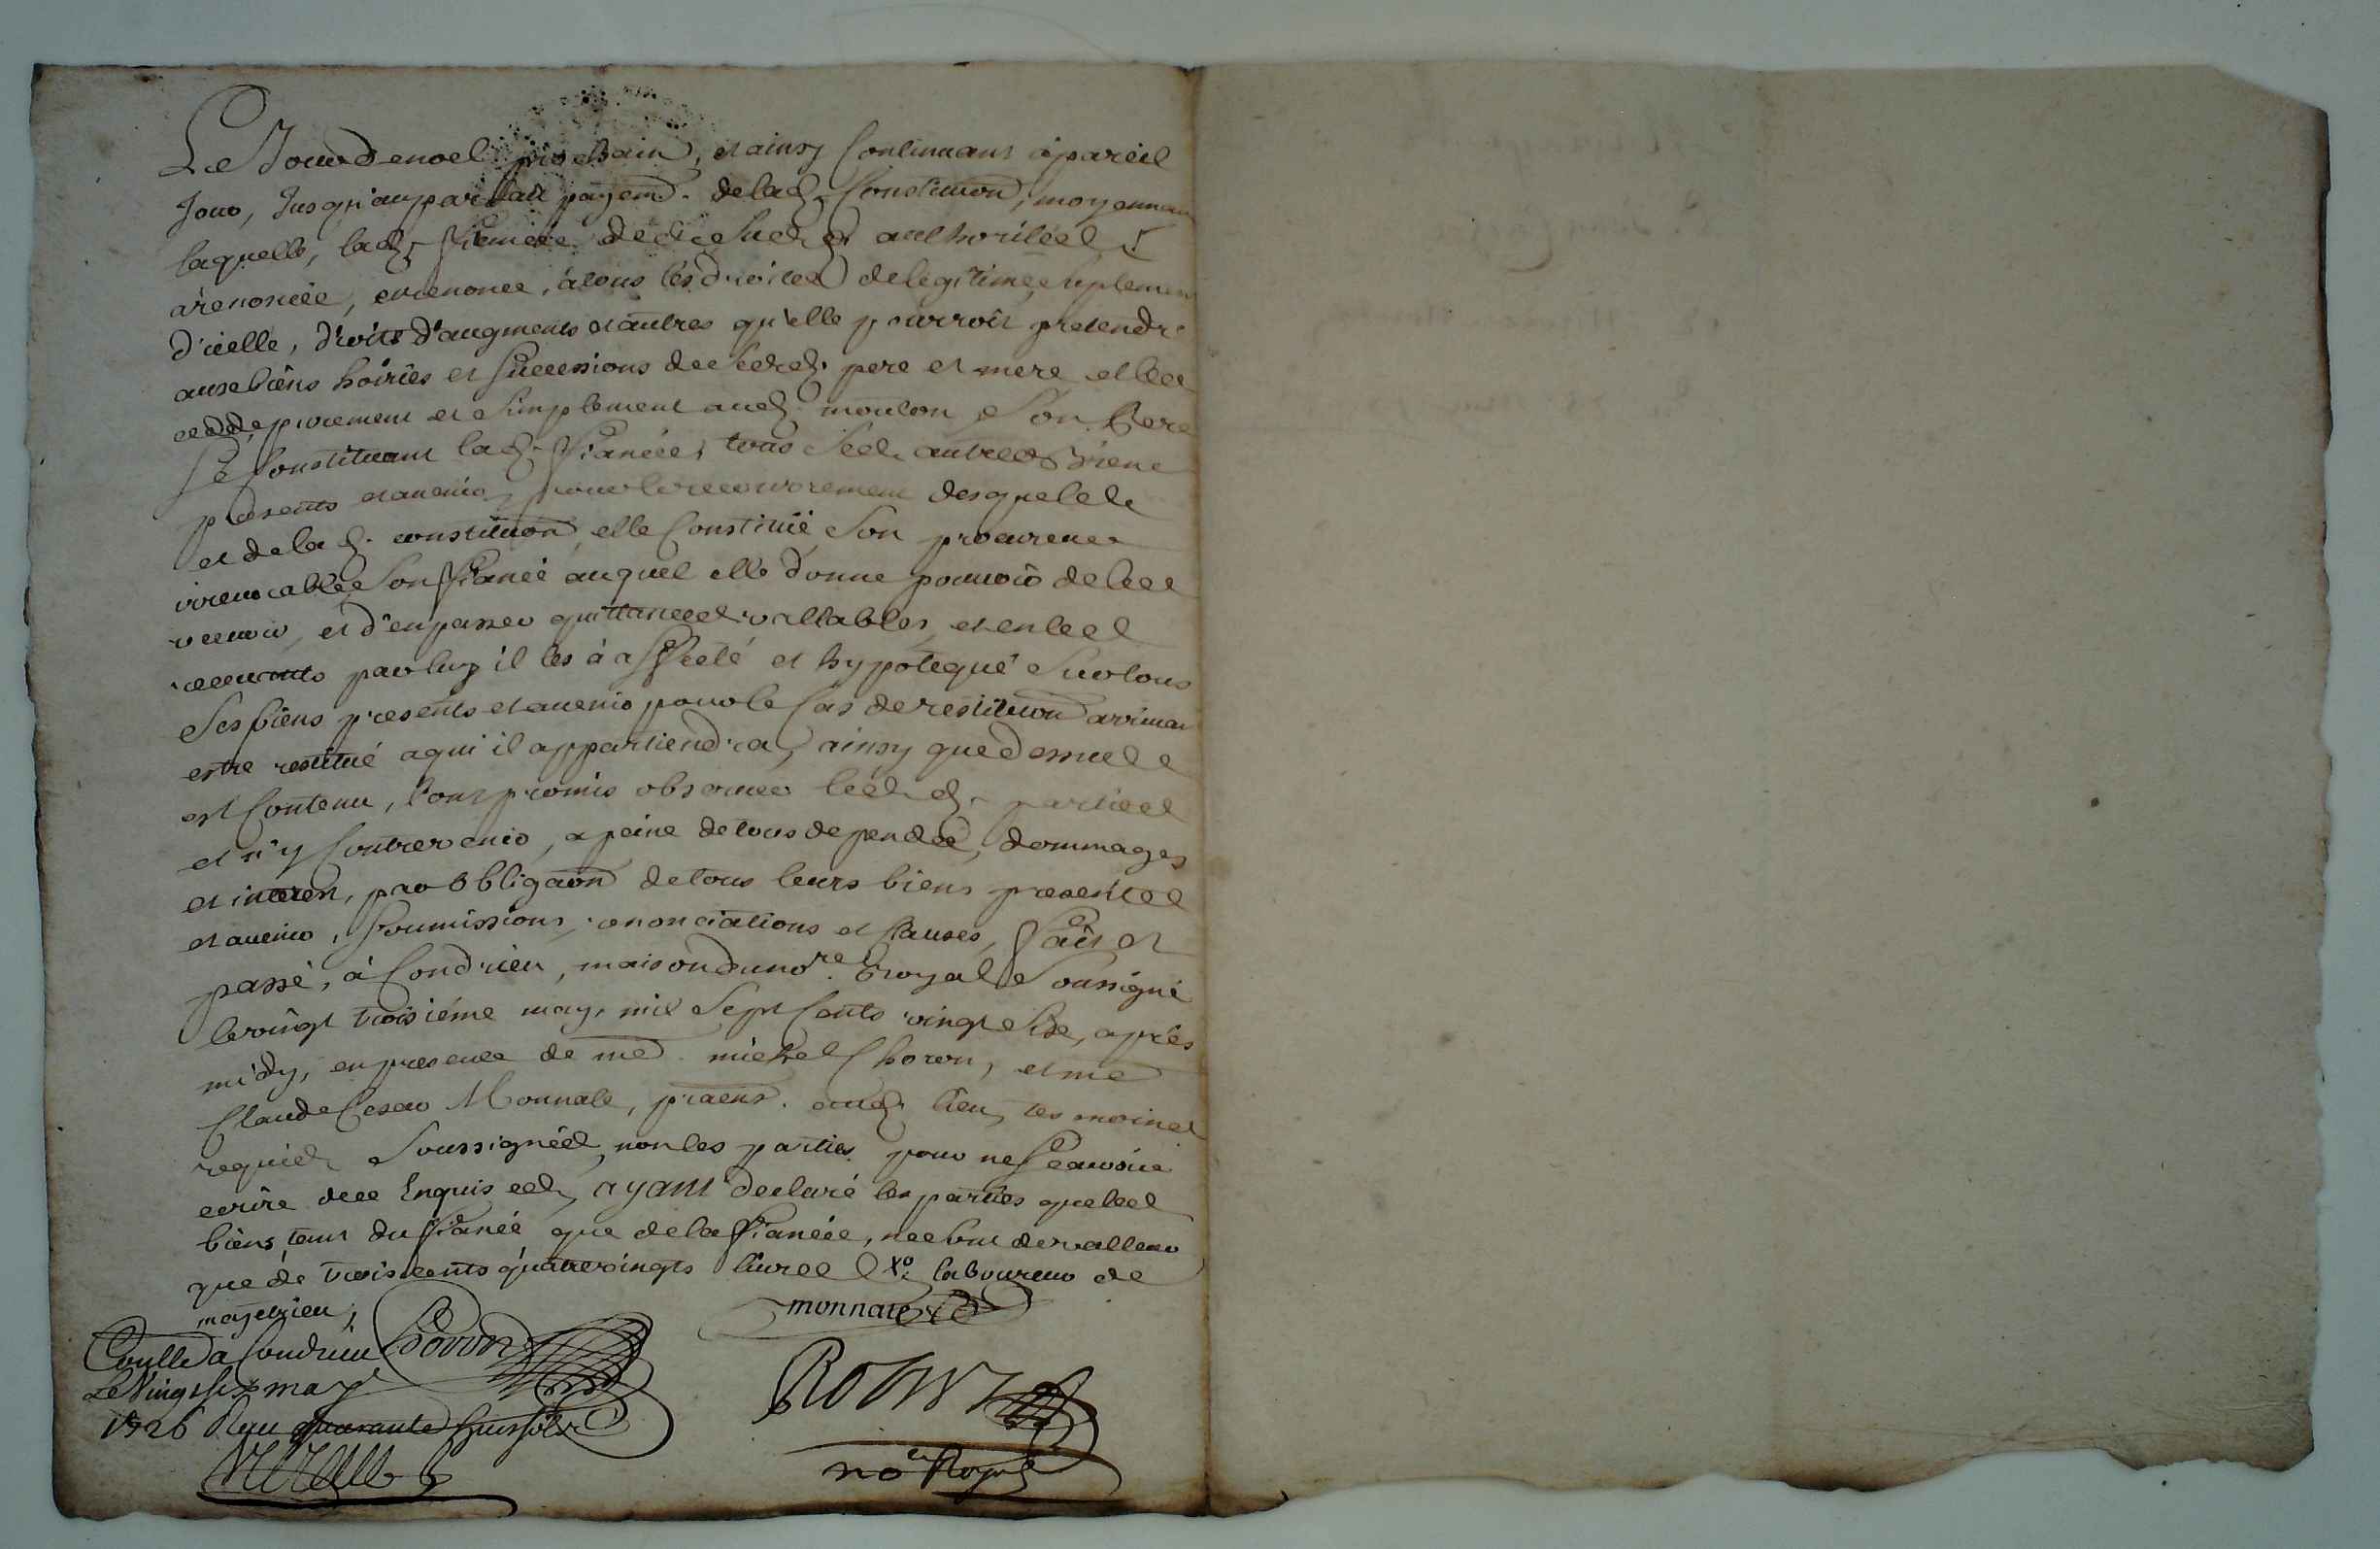 Le Jour de noel prochain, et ainsy Continuant a pareil
Jour, Jusqu'au parfait payemt. de lad. Constituon, moyennant
laquelle, lad. fiancée de ce Sud. authorisée
à renoncée, et renonce, à tous les droites de legitime, suplement
d'icelle, droits d'augments et autres qu'elle pourroit pretendre
aux biens hoiries et Successions de sesd. pere et mere et les
cedde purement et Simplement aud. moulon, Son frere
Se Constituant lad. fiancée, tous Ses autres biens
presents et avenir, pour le recouvrement desquels
et de lad. constituon elle Constitue Son procureur
irrevocable Son fiancé auquel elle donne pouvoir de les
recevoir, et d'en passer quittances vallables, et en les
recevants par luy il les à affecté et hypotequé Sur tous
Ses biens presents et avenir pour le Cas de restituon arrivant
estre restitué a qui il appartiendra, ainsy que dessus
est Contenu, l'ont promis observer lesd. parties
et n'y Contrevenir, a peine de tous dependz, dommages
et interest, par obligaon de tous leurs biens presents
et avenir, soumissions, renonciations et Clauses, fait et
passé, à Condrieu, maison du nore. Royal Soussigné
le vingt troisiéme may, mil Sept Cents vingt Six, après
midy, en presence de me. michel Choron, et me
Claude Cesar Monnate, praens. aud. lieu, tesmoins
requis Soussignés, non les parties pour ne sçavoir
ecrire de ce Enquis, ayant declaré les parties que les
biens tant du fiancé que de la fiancée, ne sont de valleur
que de trois cents quatrevingts livres Xo. laboureur de

monnate
Conllé a Condrieu Choron
Le Vingt six may
1726 Reçu quarante huit sols

no.re Royal